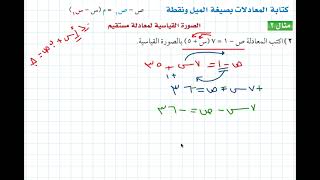 كتابة المعادلات بصيغة الميل ونقطة
ص - ص١ = م (س - س١)
مثال ٢
الصورة القياسية لمعادلة مستقيم
٢) اكتب المعادلة ص - ١ = ٧ (س + ٥) بالصورة القياسية.
أس + ب ص = جـ
ص - ١ = ٧س + ٣٥
+١
ص = ٧س + ٣٦
٧س - ص = -٣٦